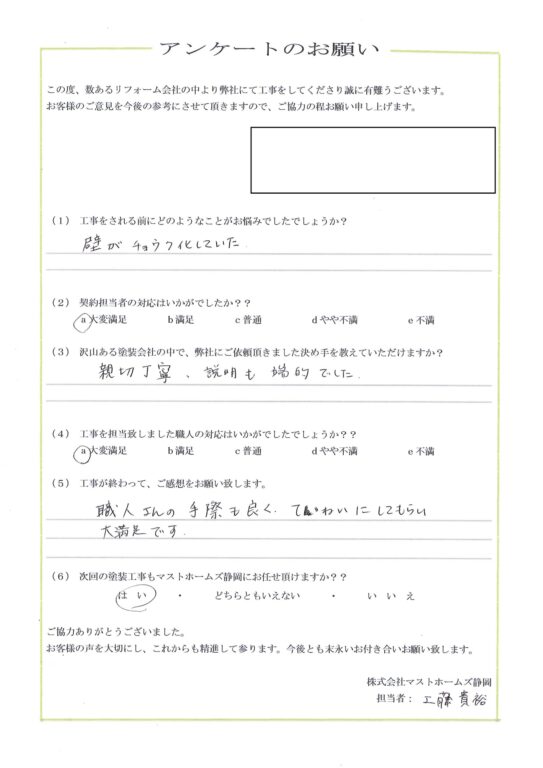 アンケートのお願い
この度、数あるリフォーム会社の中より弊社にて工事をしてくださり誠に有難うございます。
お客様のご意見を今後の参考にさせて頂きますので、ご協力の程お願い申し上げます。
(1) 工事をされる前にどのようなことがお悩みでしたでしょうか？
壁がチョウク化していた.
(2) 契約担当者の対応はいかがでしたか？？
a大変満足 b満足 c普通 dやや不満 e不満
(3) 沢山ある塗装会社の中で、弊社にご依頼頂きました決め手を教えていただけますか？
親切丁寧、説明も端的でした.
(4) 工事を担当致しました職人の対応はいかがでしたでしょうか？？
a大変満足 b満足 c普通 dやや不満 e不満
(5) 工事が終わって、ご感想をお願い致します。
職人さんの手際も良く. ていねいにしてもらい
大満足です.
(6) 次回の塗装工事もマストホームズ静岡にお任せ頂けますか？？
はい ・ どちらともいえない ・ いいえ
ご協力ありがとうございました。
お客様の声を大切にし、これからも精進して参ります。今後とも末永いお付き合いお願い致します。
株式会社マストホームズ静岡
担当者： 工藤貴裕